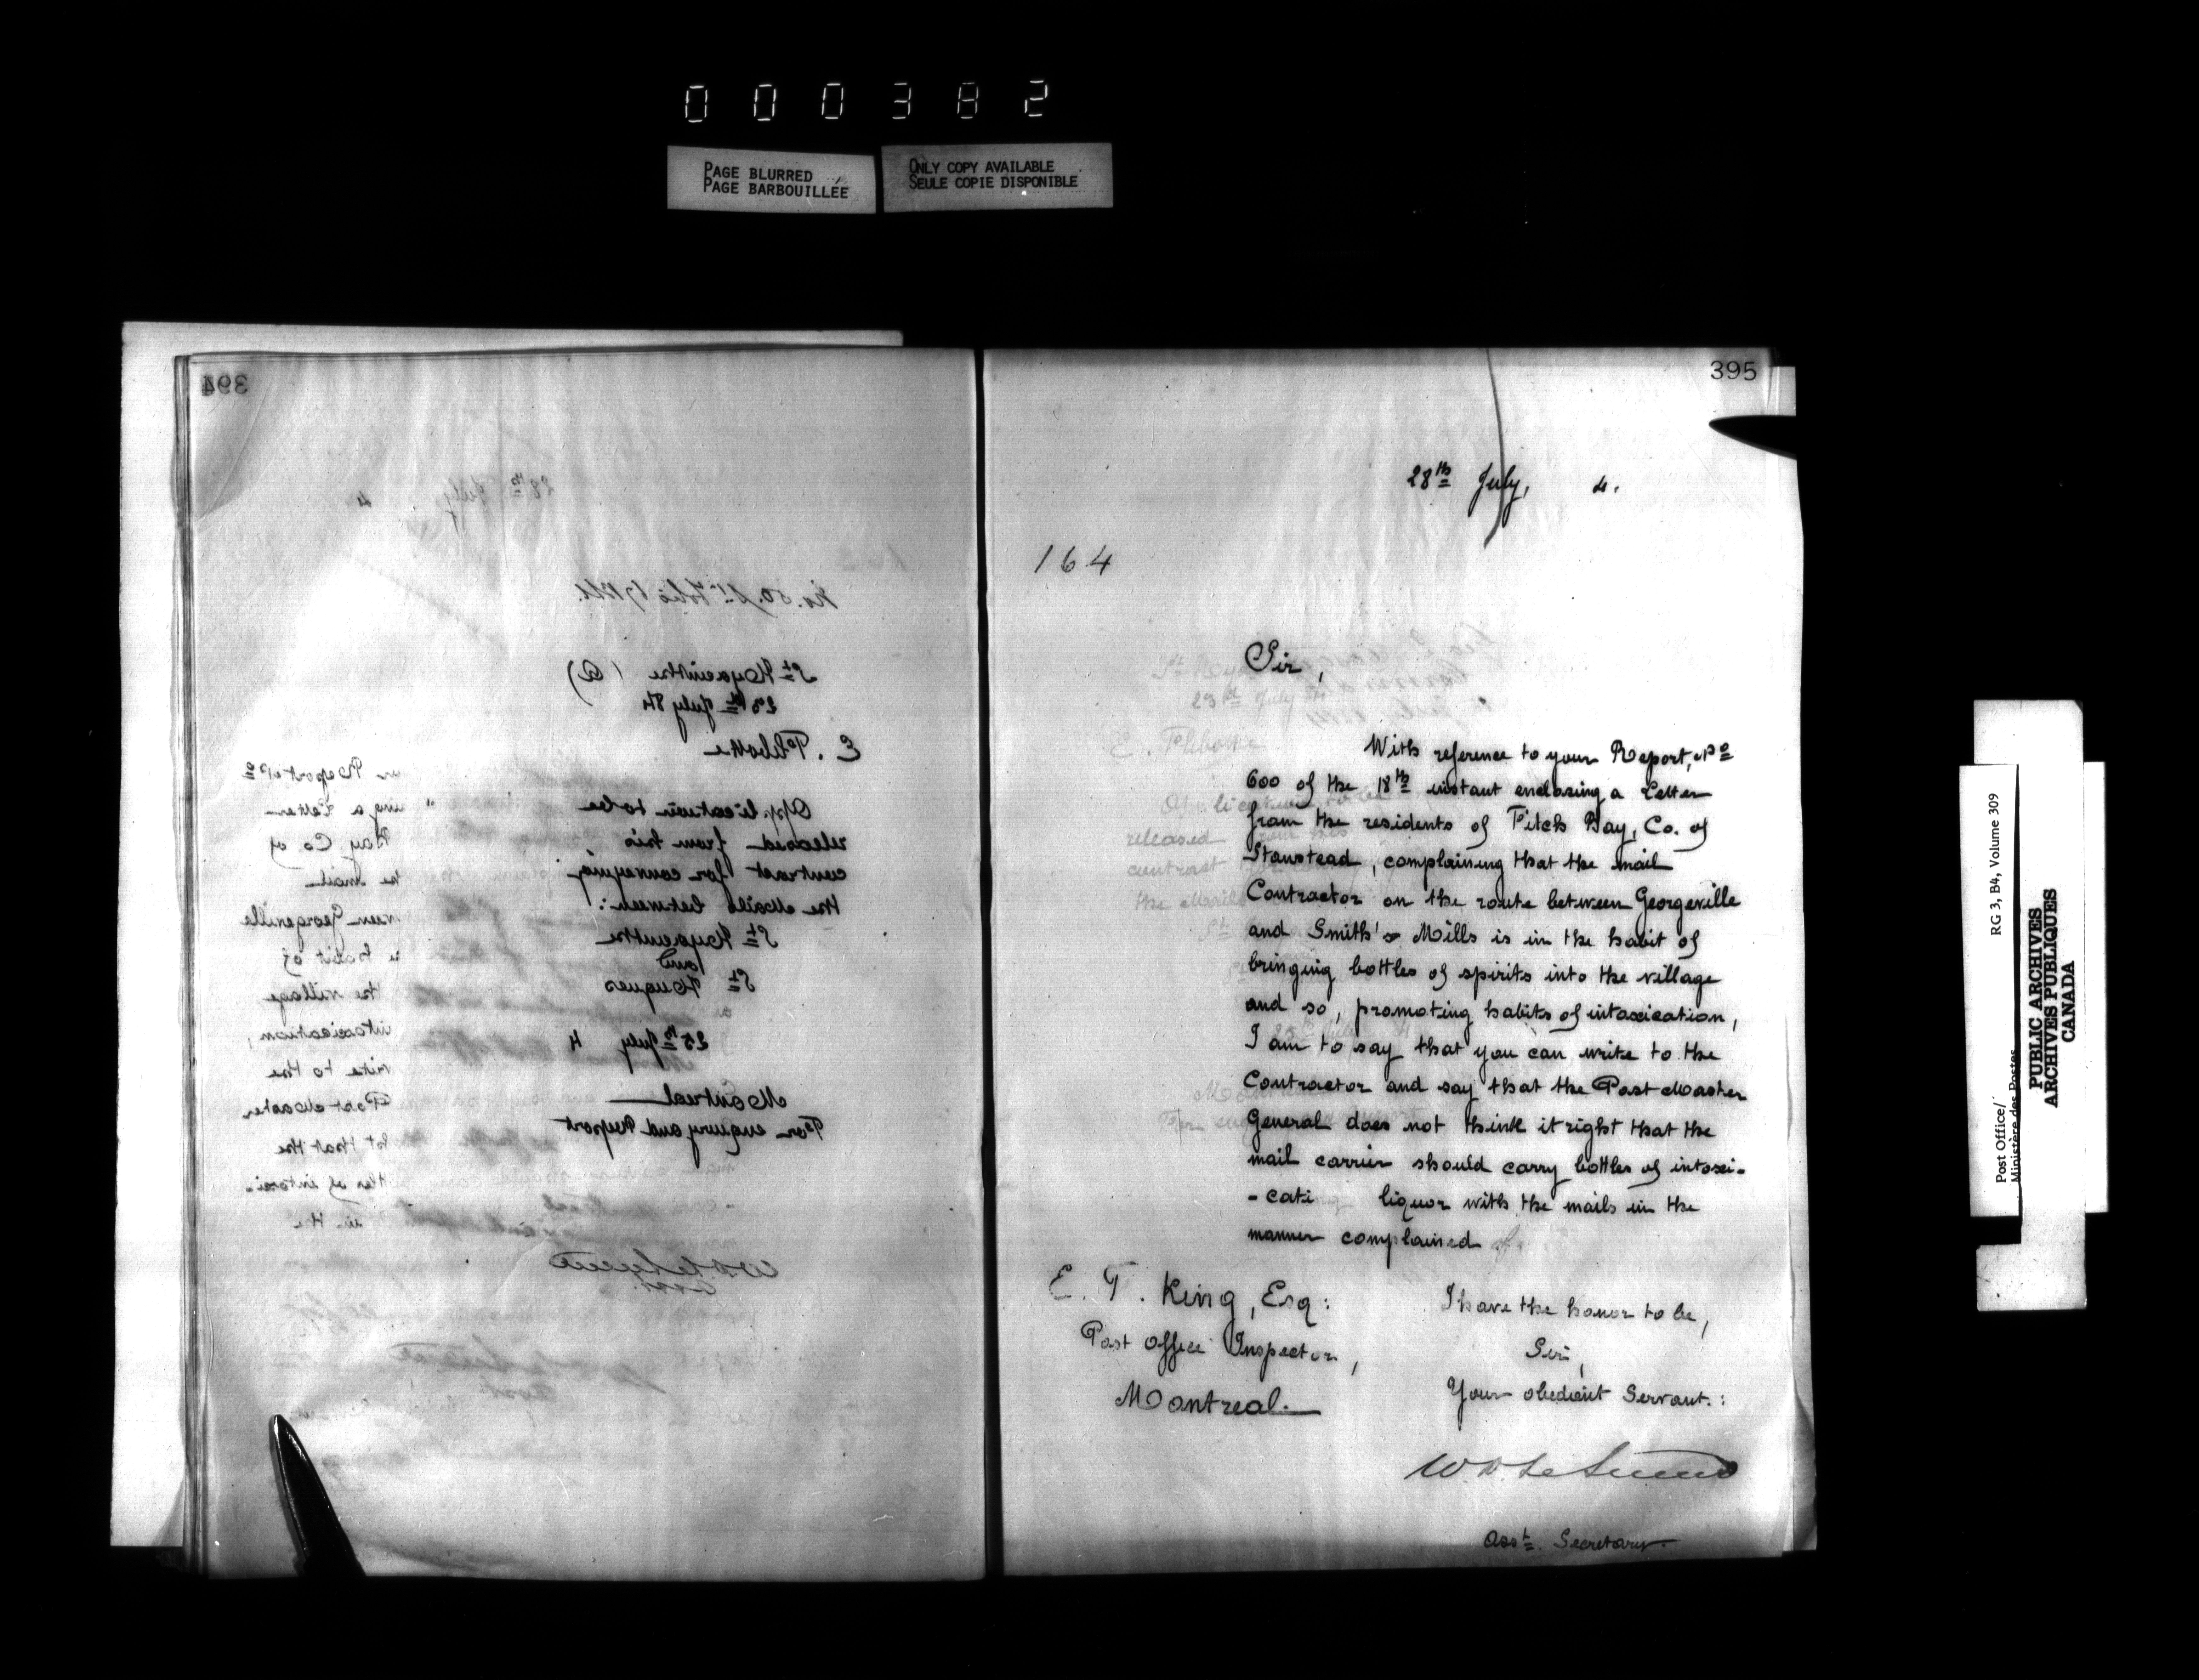 000382
PAGE BLURRED
PAGE BARBOUILLÉE
ONLY COPY AVAILABLE
SEULE COPIE DISPONIBLE
394
28th July 4
St Hyacinthe (Q)
23rd July 84
E.
Application to be
released from his
contract for conveying
the Mails between:
St Hyacinthe
and
St Hugues
25th July 4
Montreal
For enquiry and Report
395
28th July, 4.
164
Sir,
With reference to your Report, No
600 of the 18th instant enclosing a Letter
from the residents of Fitch Bay, Co. of
Stanstead, complaining that the mail
Contractor on the route between Georgeville
and Smith's Mills is in the habit of
bringing bottles of spirits into the village
and so, promoting habits of intoxication,
I am to say that you can write to the
Contractor and say that the Post Master
General does not think it right that the
mail carrier should carry bottles of intoxi-
-cating liquor with the mails in the
manner complained of.
E. T. King, Esq:
Post Office Inspector,
Montreal.
I have the honor to be,
Sir,
Your obedient Servant.:
Asst. Secretary
Post Office/
Ministère des Postes
RG 3, B4, Volume 309
PUBLIC ARCHIVES
ARCHIVES PUBLIQUES
CANADA